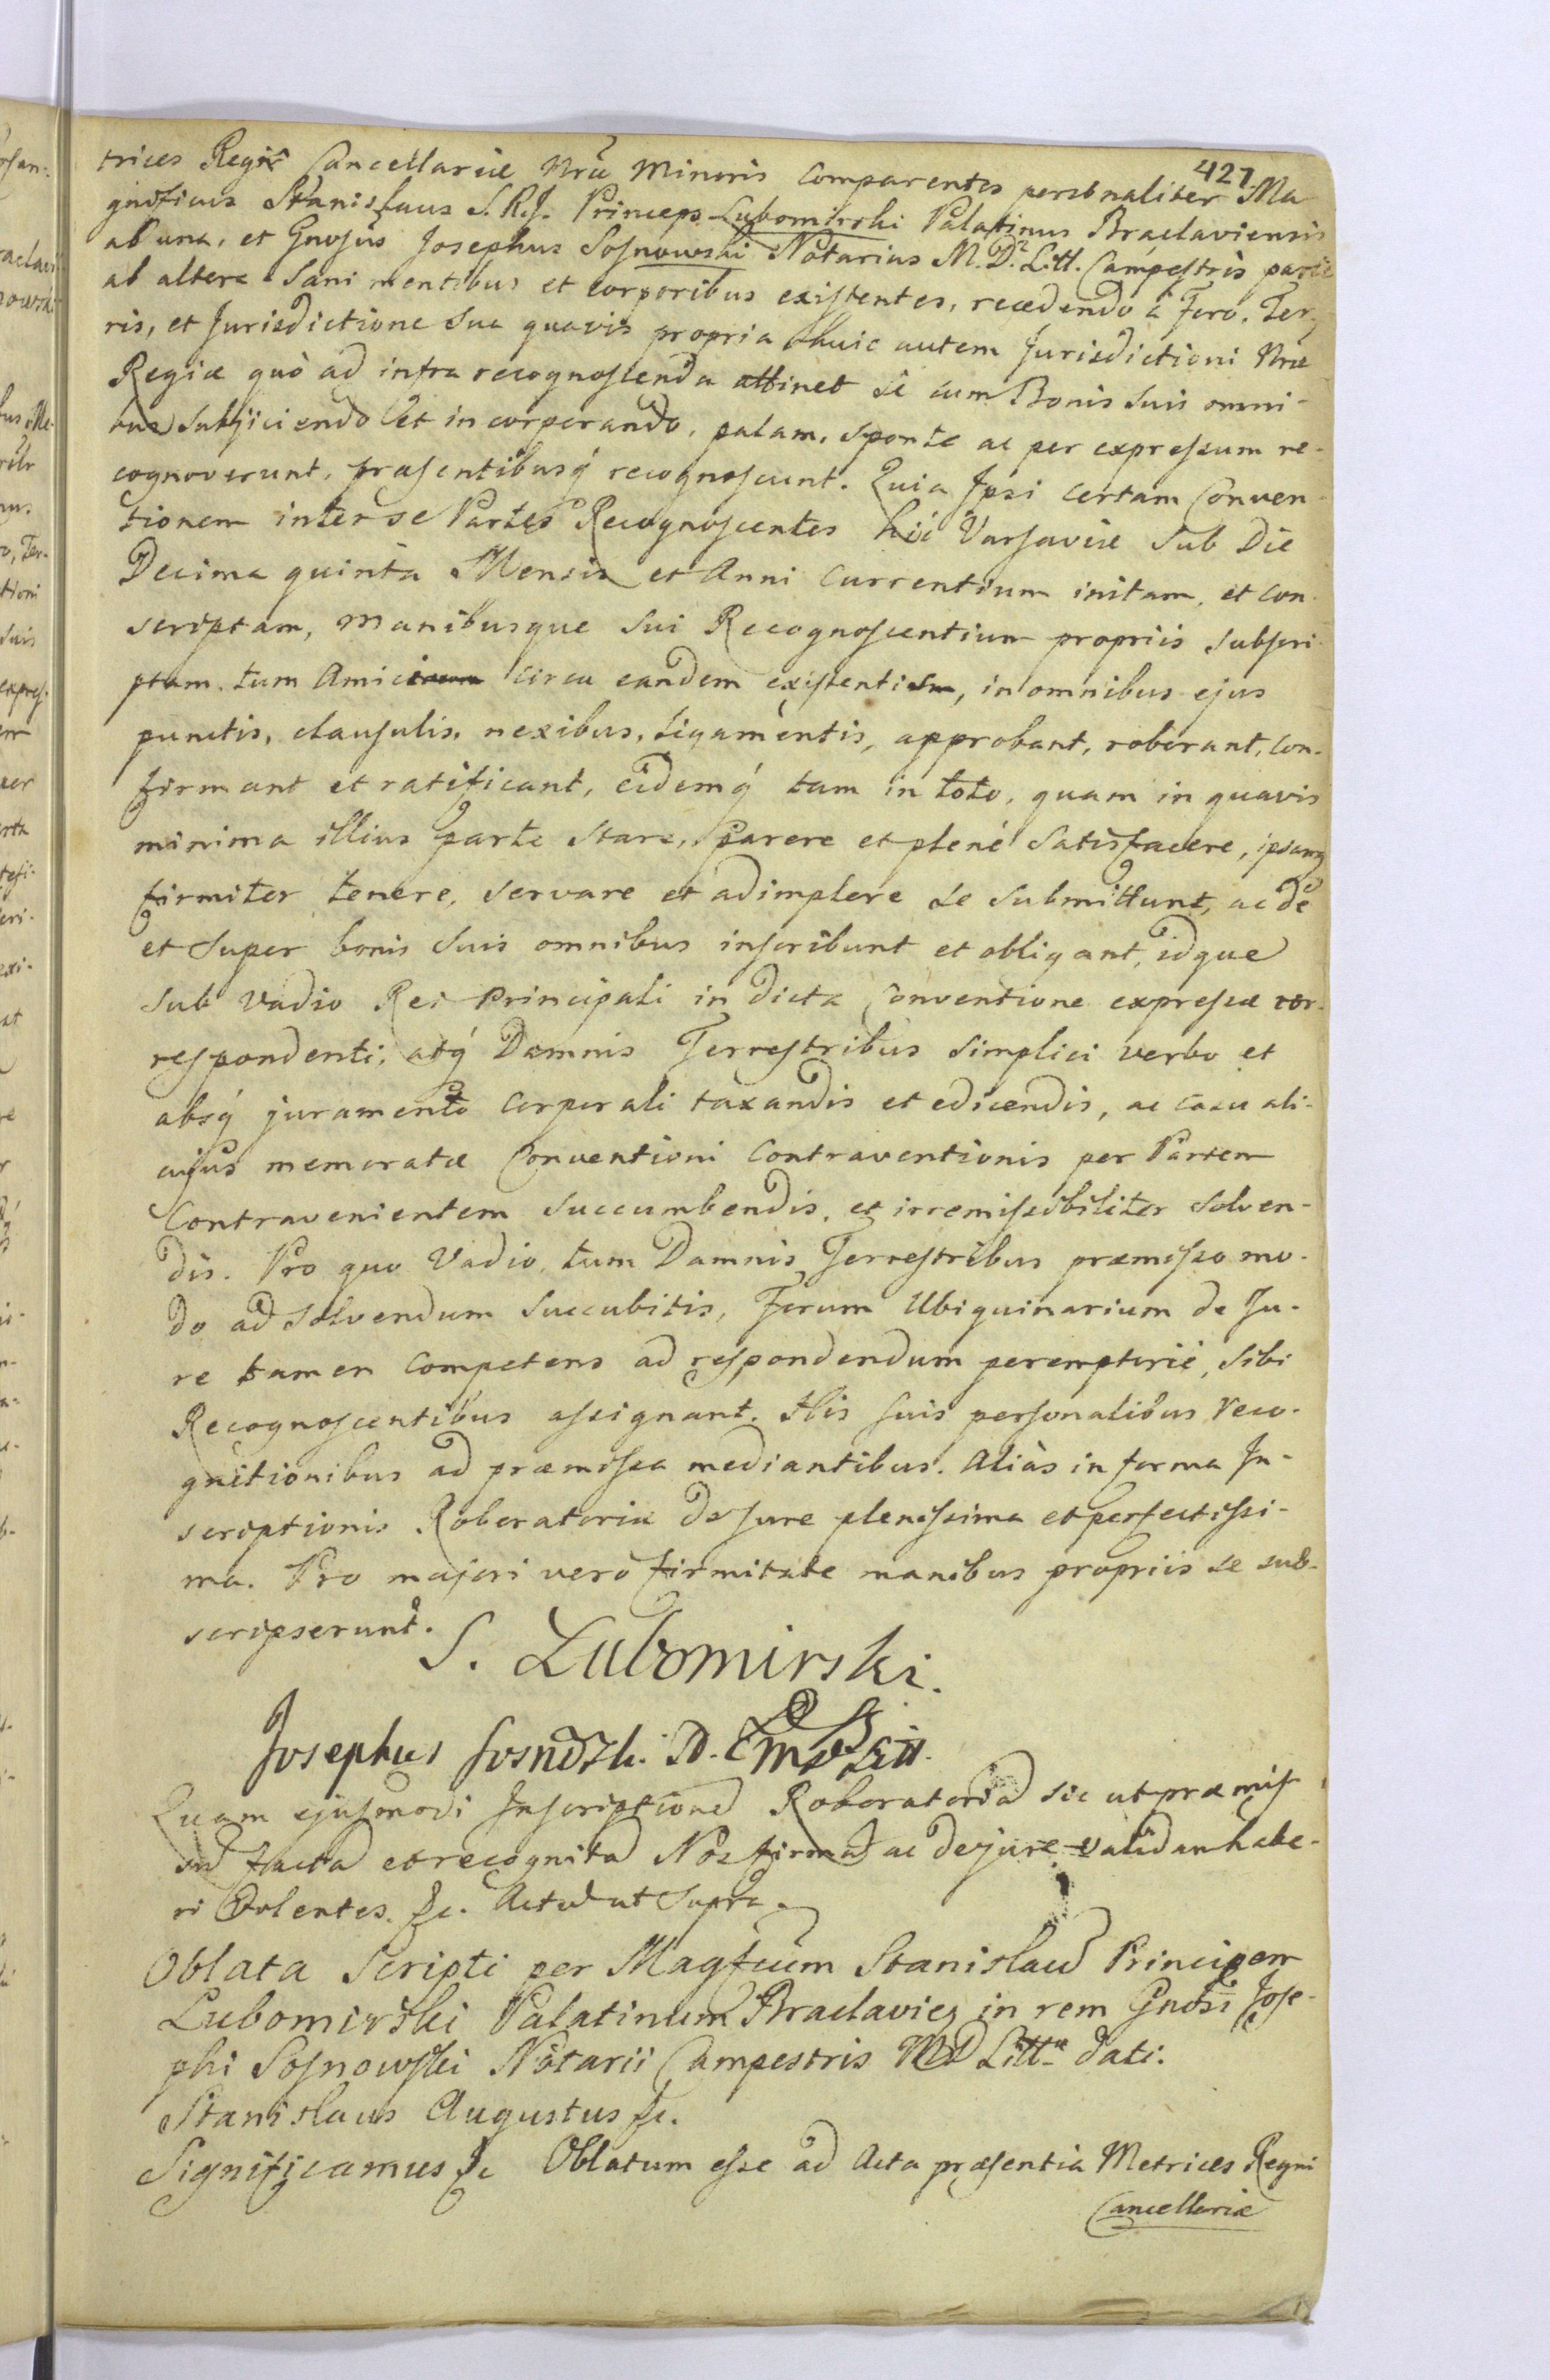 427
trices Regiæ Cancellariæ Nræ Minoris comparentes personaliter Ma
gnificus Stanislaus S. R. J. Princeps Lubomirski Palatinus Braclaviensis
ab una, et Gnosus Josephus Sosnowski Notarius M. D. Litt. Campestris parte
ab altera Sani mentibus et corporibus existentes, recedendo à Foro, Ter-
ris, et Jurisdictione sua quavis propria huic autem Jurisdictioni Nræ
Regiæ quò ad infra recognoscenda attinet se cum Bonis suis omni-
bus subjiciendo et incorporando, palam, sponte ac per expressum re-
cognoverunt, præsentibusq́ recognoscunt. Quia Ipsi certam Conven-
tionem inter se Partes Recognoscentes hìc Varsaviæ sub Die
Decima quinta Mensis et Anni Currentium initam, et con-
scriptam, manibusque sui Recognoscentium propriis subscri-
ptam tum Amicorum circa eandem existentium, in omnibus ejus
punctis, clausulis, nexibus, ligamentis, approbant, roborant, con-
firmant et ratificant, eidemq́ tam in toto, quam in quavis
minima illius parte stare, parere et plenè satisfacere, ipsamq
firmiter tenere, servare et adimplere se submittunt, ac de
et super bonis suis omnibus inscribunt et obligant, idque
sub vadio Rei Principali in dicta Conventione expressæ cor-
respondenti, atq́ Damnis Terrestribus simplici verbo et
absq́ juramento corporali taxandis et edicendis, ac casu ali-
cujus memoratæ Conventioni Contraventionis per Partem
Contravenientem succumbendis, et irremissibiliter solven-
dis. Pro quo Vadio, tum Damnis Terrestribus præmisso mo-
do ad solvendum succubitis, Forum Ubiquinarium de Ju-
re tamen Competens ad respondendum peremptoriè, sibi
Recognoscentibus assignant. His suis personalibus reco-
gnitionibus ad præmissa mediantibus. Aliàs in forma In-
scriptionis Roboratoriæ de jure plenissima et perfectissi-
ma. Pro majori verò firmitate manibus propriis se sub-
scripserunt.
S. Lubomirski.
Josephus
Quam ejusmodi Inscriptione Roboratoria sic ut præmis
facta et recognita Nos firma ac de jure validam habe-
ri Volentes. &c. Actum ut Supra.
Oblata Scripti per Magfcum Stanislaum Principem
Lubomirski Palatinum Braclavien in rem Gnosi Jose-
phi Sosnowski Notarii Campestris M D Litt. dati.
Stanislaus Augustus &c.
Significamus &c Oblatum esse ad Acta præsentia Metrices Regni
Cancellariæ